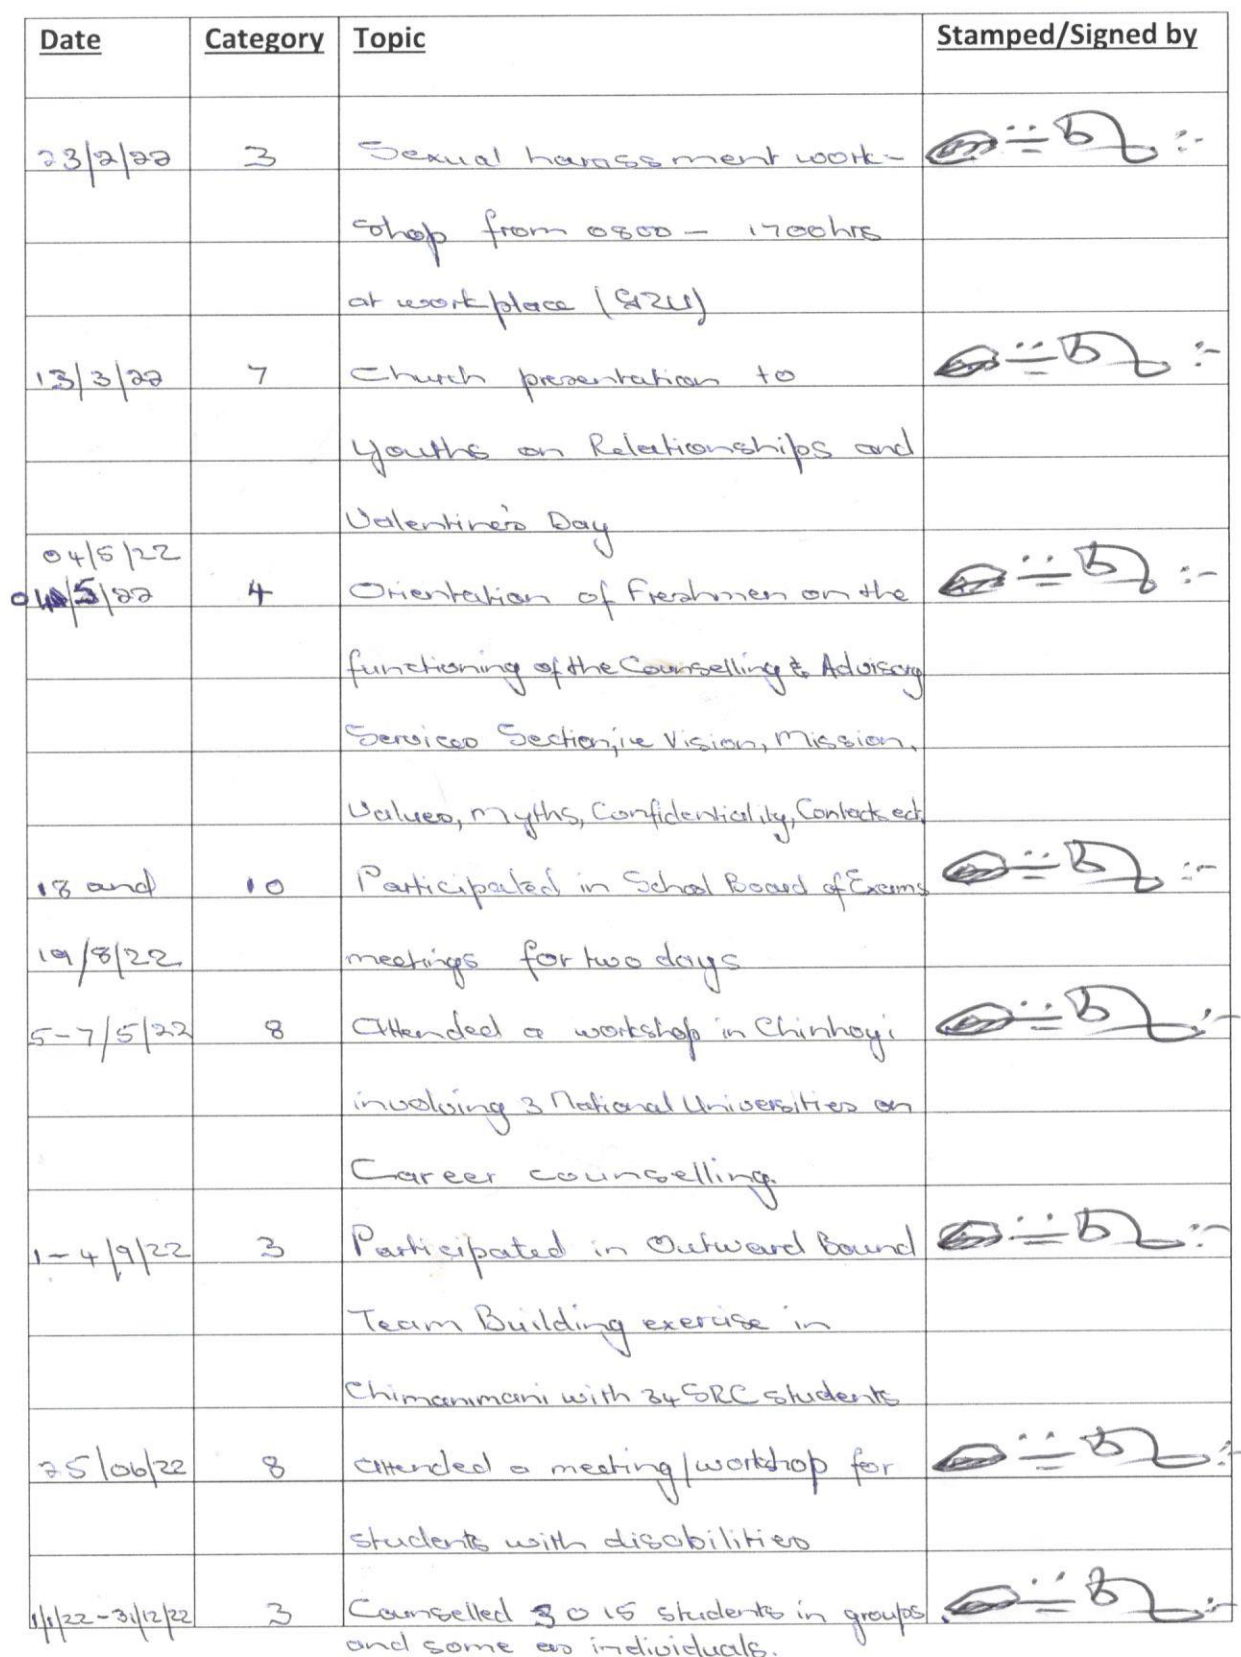 Date Category Topic Stamped/Signed by
23/2/22 3 Sexual harassment work-
shop from 0800 - 1700hrs
at workplace (GZU)
13/3/22 7 Church presentation to
Youths on Relationships and
Valentine's Day
04/5/22
04/5/22 4 Orientation of Freshmen on the
functioning of the Counselling & Advisory
Services Section, ie Vision, Mission,
Values, Myths, Confidentiality, Contacts ect
18 and 10 Participated in School Board of Exams
19/8/22 meetings for two days
5-7/5/22 8 Attended a workshop in Chinhoyi
involving 3 National Universities on
Career counselling.
1-4/9/22 3 Participated in Outward Bound
Team Building exercise in
Chimanimani with 34 SRC students
25/06/22 8 Attended a meeting/workshop for
students with disabilities
1/1/22-31/12/22 3 Counselled 3015 students in groups
and some as individuals.